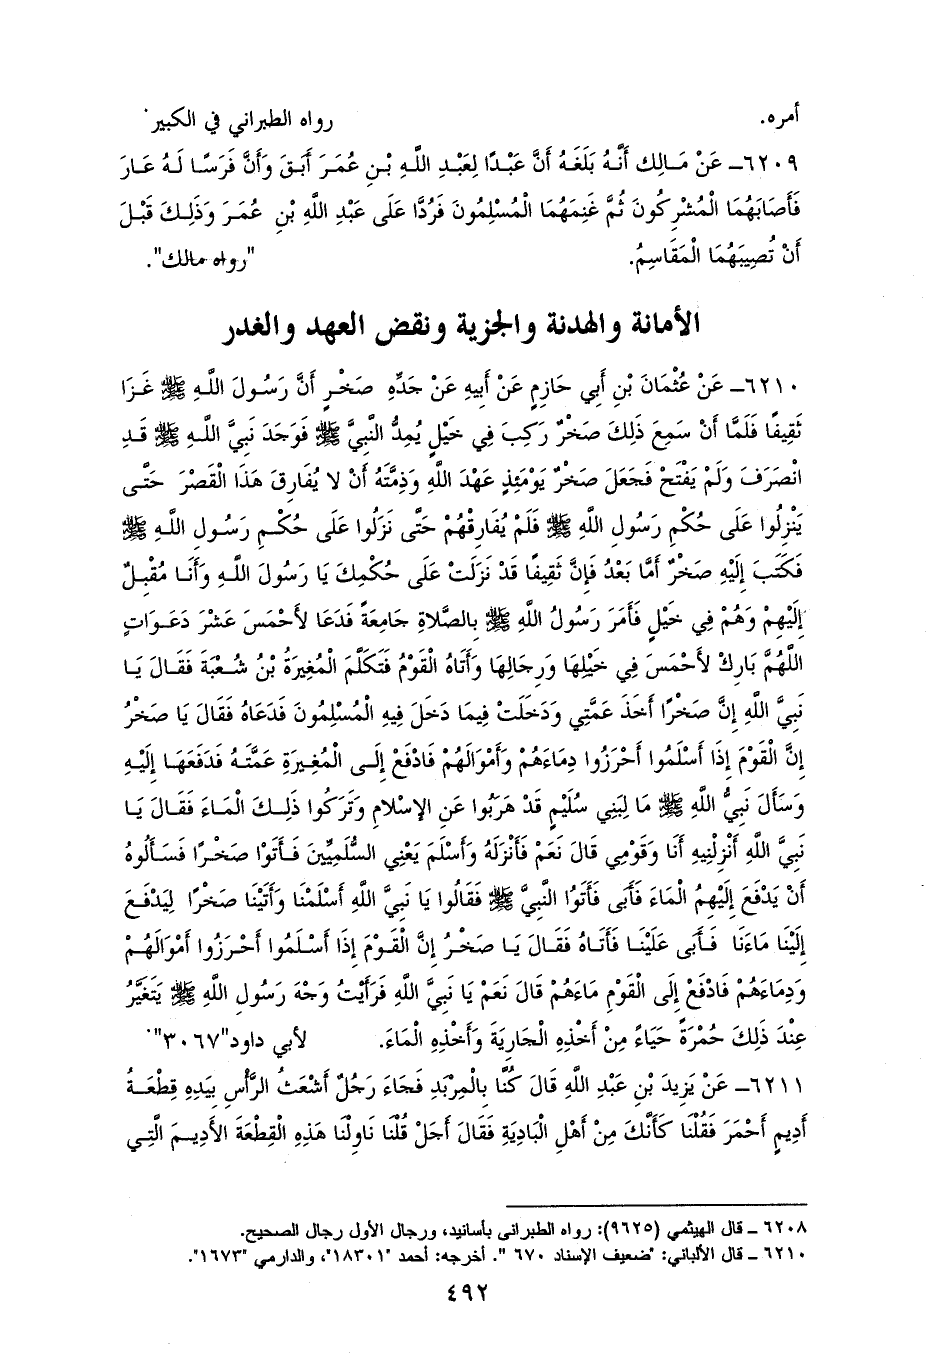 أمره. رواه الطبراني في الكبير.
٦٢٠٩ـ عَنْ مَالِك أَنَّهُ بَلَغَهُ أَنَّ عَبْدًا لِعَبْدِ اللَّهِ بْنِ عُمَرَ أَبَقَ وَأَنَّ فَرَسًا لَهُ عَارَ
فَأَصَابَهُمَا الْمُشْرِكُونَ ثُمَّ غَنِمَهُمَا الْمُسْلِمُونَ فَرُدَّا عَلَى عَبْدِ اللَّهِ بْنِ عُمَرَ وَذَلِكَ قَبْلَ
أَنْ تُصِيبَهُمَا الْمَقَاسِمُ. "رواه مالك".
الأمانة والهدنة والجزية ونقض العهد والغدر
٦٢١٠ـ عَنْ عُثْمَانَ بْنِ أَبِي حَازِمٍ عَنْ أَبِيهِ عَنْ جَدِّهِ صَخْرٍ أَنَّ رَسُولَ اللَّهِ ﷺ غَزَا
ثَقِيفًا فَلَمَّا أَنْ سَمِعَ ذَلِكَ صَخْرٌ رَكِبَ فِي خَيْلٍ يُمِدُّ النَّبِيَّ ﷺ فَوَجَدَ نَبِيَّ اللَّهِ ﷺ قَدِ
انْصَرَفَ وَلَمْ يَفْتَحْ فَجَعَلَ صَخْرٌ يَوْمَئِذٍ عَهْدَ اللَّهِ وَذِمَّتَهُ أَنْ لا يُفَارِقَ هَذَا الْقَصْرَ حَتَّى
يَنْزِلُوا عَلَى حُكْمِ رَسُولِ اللَّهِ ﷺ فَلَمْ يُفَارِقْهُمْ حَتَّى نَزَلُوا عَلَى حُكْمِ رَسُولِ اللَّهِ ﷺ
فَكَتَبَ إِلَيْهِ صَخْرٌ أَمَّا بَعْدُ فَإِنَّ ثَقِيفًا قَدْ نَزَلَتْ عَلَى حُكْمِكَ يَا رَسُولَ اللَّهِ وَأَنَا مُقْبِلٌ
إِلَيْهِمْ وَهُمْ فِي خَيْلٍ فَأَمَرَ رَسُولُ اللَّهِ ﷺ بِالصَّلاةِ جَامِعَةً فَدَعَا لأَحْمَسَ عَشْرَ دَعَوَاتٍ
اللَّهُمَّ بَارِكْ لأَحْمَسَ فِي خَيْلِهَا وَرِجَالِهَا وَأَتَاهُ الْقَوْمُ فَتَكَلَّمَ الْمُغِيرَةُ بْنُ شُعْبَةَ فَقَالَ يَا
نَبِيَّ اللَّهِ إِنَّ صَخْرًا أَخَذَ عَمَّتِي وَدَخَلَتْ فِيمَا دَخَلَ فِيهِ الْمُسْلِمُونَ فَدَعَاهُ فَقَالَ يَا صَخْرُ
إِنَّ الْقَوْمَ إِذَا أَسْلَمُوا أَحْرَزُوا دِمَاءَهُمْ وَأَمْوَالَهُمْ فَادْفَعْ إِلَى الْمُغِيرَةِ عَمَّتَهُ فَدَفَعَهَا إِلَيْهِ
وَسَأَلَ نَبِيُّ اللَّهِ ﷺ مَا لِبَنِي سُلَيْمٍ قَدْ هَرَبُوا عَنِ الإِسْلامِ وَتَرَكُوا ذَلِكَ الْمَاءَ فَقَالَ يَا
نَبِيَّ اللَّهِ أَنْزِلْنِيهِ أَنَا وَقَوْمِي قَالَ نَعَمْ فَأَنْزَلَهُ وَأَسْلَمَ يَعْنِي السُّلَمِيِّينَ فَأَتَوْا صَخْرًا فَسَأَلُوهُ
أَنْ يَدْفَعَ إِلَيْهِمُ الْمَاءَ فَأَبَى فَأَتَوُا النَّبِيَّ ﷺ فَقَالُوا يَا نَبِيَّ اللَّهِ أَسْلَمْنَا وَأَتَيْنَا صَخْرًا لِيَدْفَعَ
إِلَيْنَا مَاءَنَا فَأَبَى عَلَيْنَا فَأَتَاهُ فَقَالَ يَا صَخْرُ إِنَّ الْقَوْمَ إِذَا أَسْلَمُوا أَحْرَزُوا أَمْوَالَهُمْ
وَدِمَاءَهُمْ فَادْفَعْ إِلَى الْقَوْمِ مَاءَهُمْ قَالَ نَعَمْ يَا نَبِيَّ اللَّهِ فَرَأَيْتُ وَجْهَ رَسُولِ اللَّهِ ﷺ يَتَغَيَّرُ
عِنْدَ ذَلِكَ حُمْرَةً حَيَاءً مِنْ أَخْذِهِ الْجَارِيَةَ وَأَخْذِهِ الْمَاءَ. لأبي داود"٣٠٦٧".
٦٢١١ـ عَنْ يَزِيدَ بْنِ عَبْدِ اللَّهِ قَالَ كُنَّا بِالْمِرْبَدِ فَجَاءَ رَجُلٌ أَشْعَثُ الرَّأْسِ بِيَدِهِ قِطْعَةُ
أَدِيمٍ أَحْمَرَ فَقُلْنَا كَأَنَّكَ مِنْ أَهْلِ الْبَادِيَةِ فَقَالَ أَجَلْ قُلْنَا نَاوِلْنَا هَذِهِ الْقِطْعَةَ الأَدِيمَ الَّتِي
٦٢٠٨ ـ قال الهيثمي (٩٦٢٥): رواه الطبرانى بأسانيد، ورجال الأول رجال الصحيح.
٦٢١٠ ـ قال الألباني: "ضعيف الإسناد ٦٧٠ ". أخرجه: أحمد "١٨٣٠١"، والدارمي "١٦٧٣".
٤٩٢